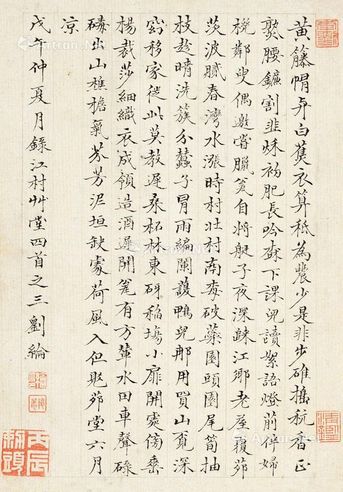 黃籐帽弁白衣算祗為農少是非步碓搖秔香正
熟腰鐮割韭初肥長吟下課兒讀絮語燈前伴婦
機鄰叟偶邀嘗臘甕自將艇子夜深歸江邨老屋覆茆
茨波膩春灣水漲時村北村南麥破園頭園尾筍抽
枝晴洗簇分蠶子冒雨編闌護鴨兒那用買山寬深
窈移家從此莫教遲桑柘林東稻場小扉開處傍垂
楊裁莎細織衣成領造酒遲開甕有方輦水田車聲碌
磷出山樵擔氣芬芳泥垣缺處荷風入但覺茆堂六月
涼
戊午仲夏月錄江村艸堂四首之三 劉綸
丙辰